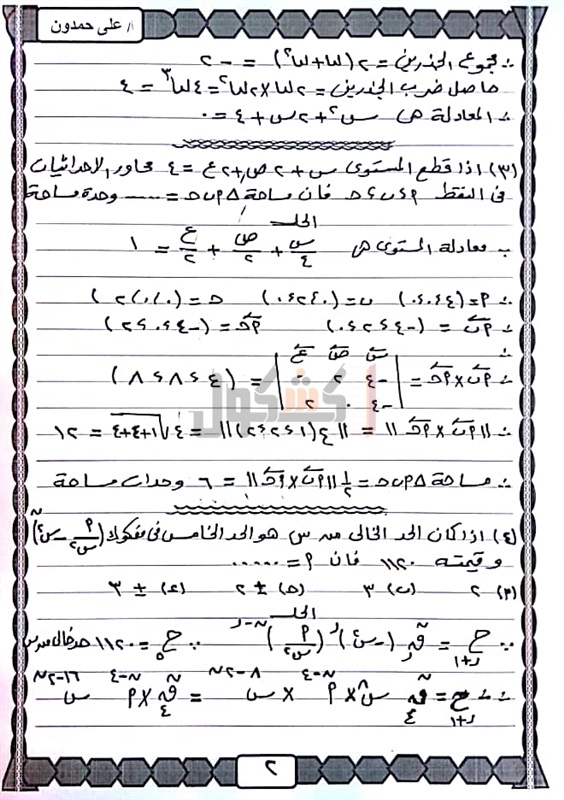 أ/ على حمدون
∴ مجموع الجذرين = ٢(ω + ω²) = -٢
حاصل ضرب الجذرين = ٢ω × ٢ω² = ٤ω³ = ٤
∴ المعادلة هى س² + ٢س + ٤ = ٠
(٣) اذا قطع المستوى س + ٢ص + ٢ع = ٤ محاور الاحداثيات
فى النقط م، ب، ح فان مساحة △ م ب ح = ..... وحدة مساحة
الحل
∵ معادلة المستوى هى س/٤ + ص/٢ + ع/٢ = ١
∴ م = (٤، ٠، ٠) ب = (٠، ٢، ٠) ح = (٠، ٠، ٢)
∴ م ب = (-٤، ٢، ٠) م ح = (-٤، ٠، ٢)
∴ م ب × م ح = | س ص ع ، -٤ ٢ ٠ ، -٤ ٠ ٢ | = (٤، ٨، ٨)
كشكول
∴ || م ب × م ح || = || ٤(١، ٢، ٢) || = ٤√١+٤+٤ = ١٢
∴ مساحة △ م ب ح = ١/٢ || م ب × م ح || = ٦ وحدات مساحة
(٤) اذا كان الحد الخالى من س هو الحد الخامس فى مفكوك (م/س² - س²)ⁿ
وقيمته ١١٢٠ فان م = .....
(م) ٢ (ب) ٣ (ح) ± ٢ (ء) ± ٣
الحل
∵ ح ر+١ = ⁿق ر (-س²)ʳ (م/س²)ⁿ⁻ʳ ∵ ح٥ = ١١٢٠ حد خالى من س
∴ ح ر+١ = ⁿق٤ س⁸ × مⁿ⁻⁴ × س⁸⁻²ⁿ = ⁿق٤ × مⁿ⁻⁴ س¹⁶⁻²ⁿ
٢